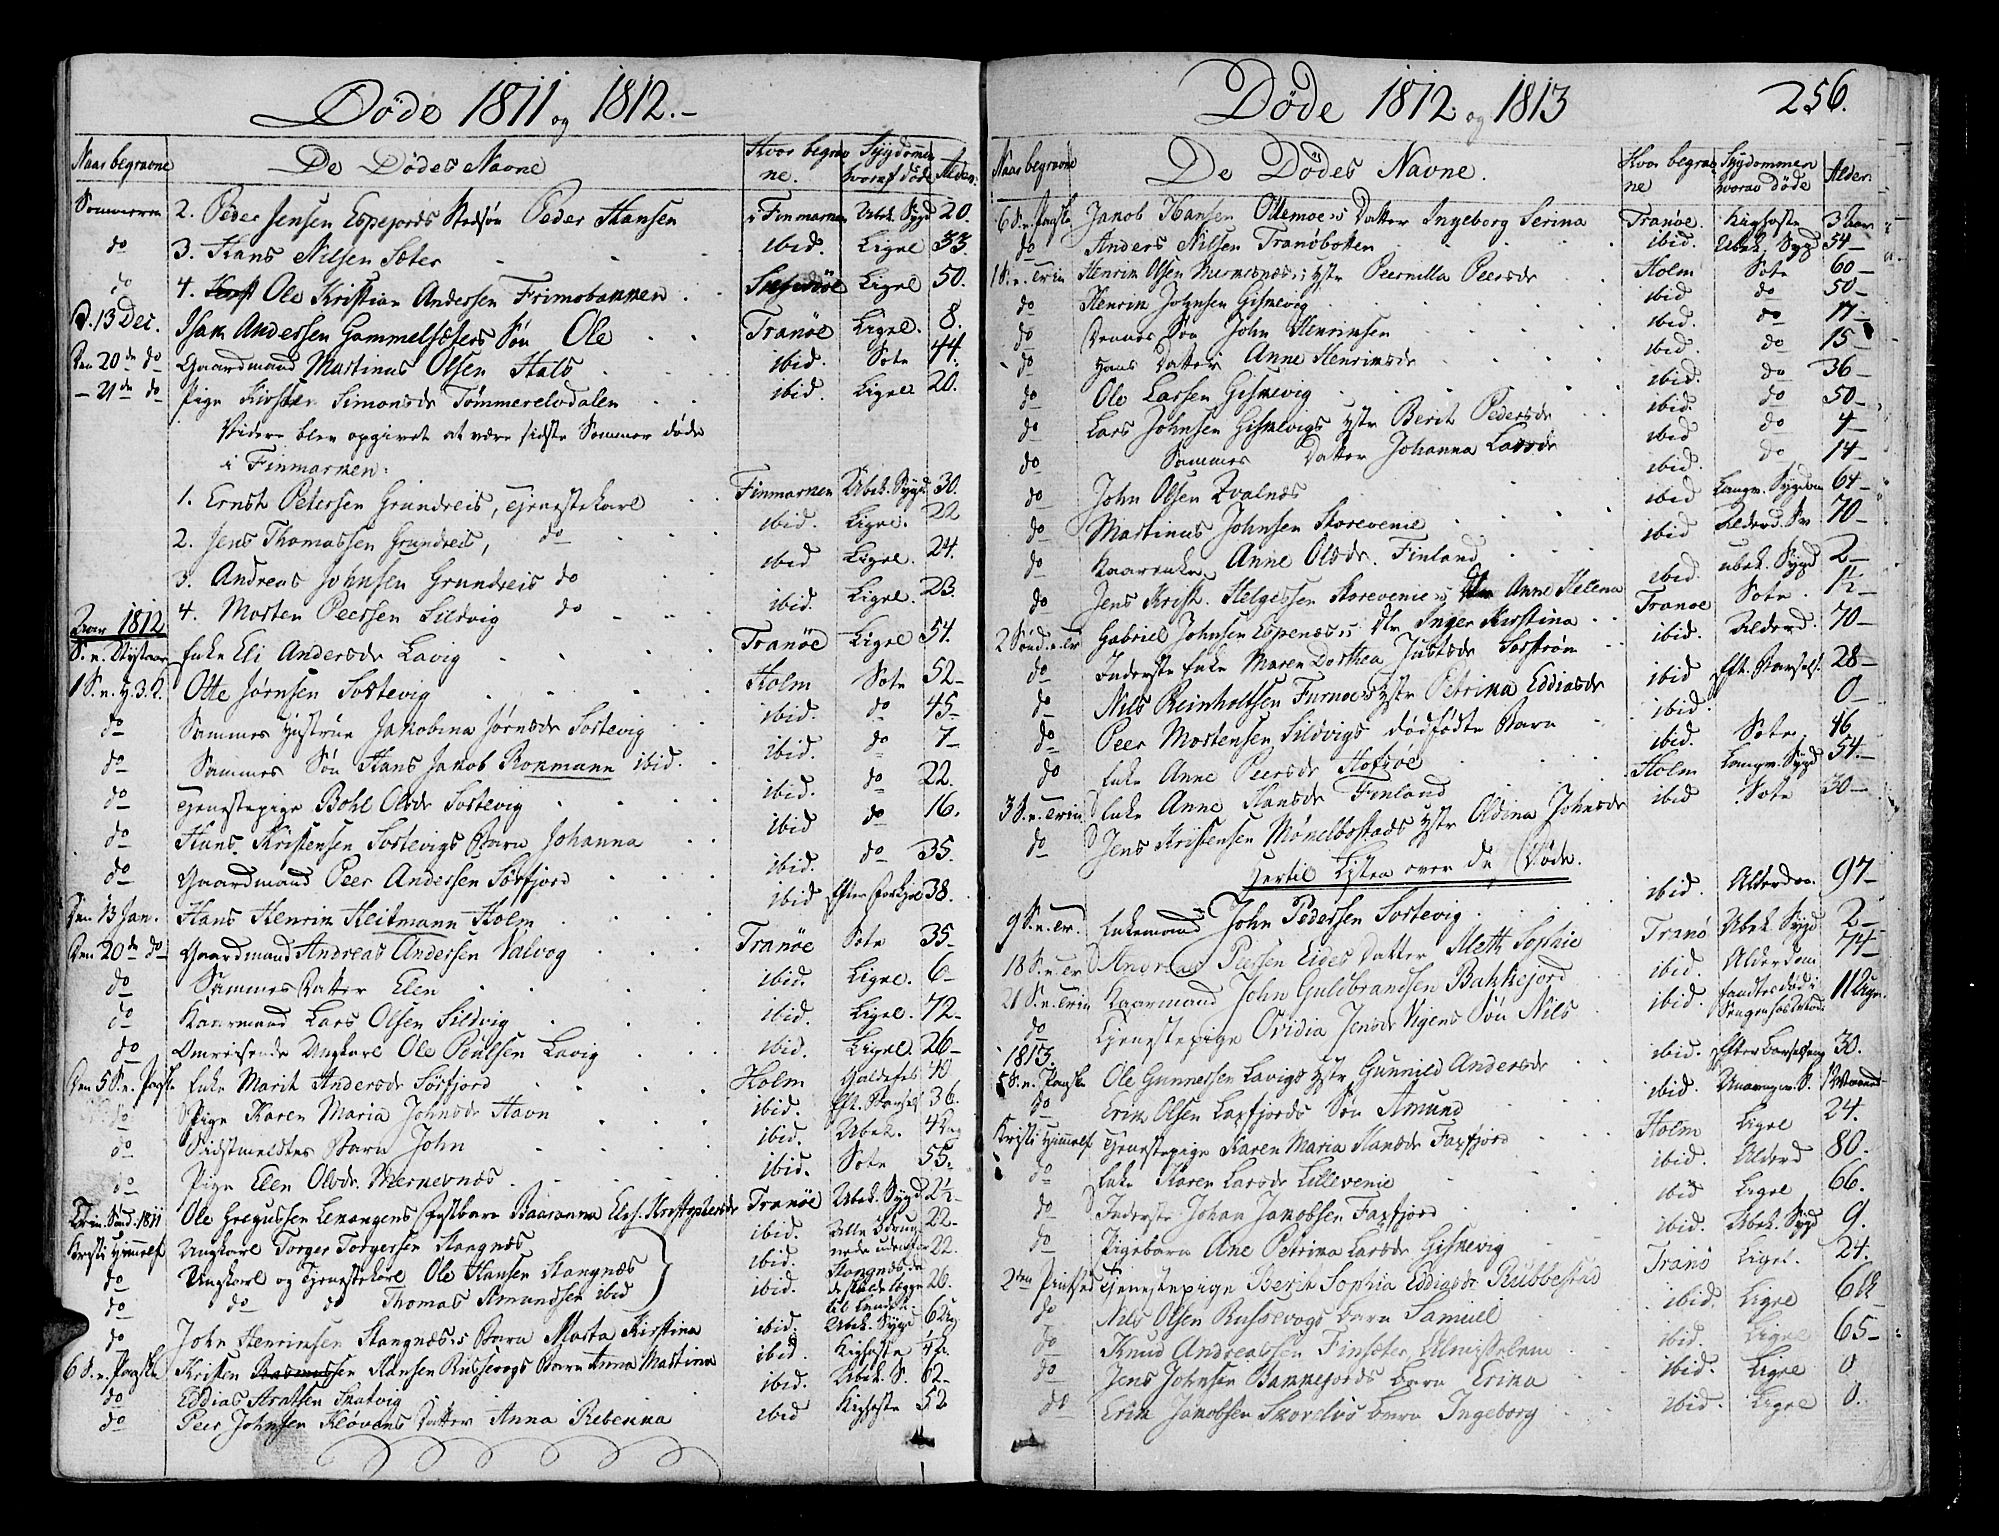 Døde 1811 og 1812.-
Naar begravne De Dødes Navne Hvor begravne. Sygdommen hvoraf døde Alder.
Sommeren 2. Peder Jensen Espejords Stedsøn Peder Hansen i Finmarken Ubek. Sygd 20.
do 3. Hans Nilsen Sæter ibid. Ligel 33.
do 4. Ole Kristian Andersen Trimobakken Ligel 50.
d. 13 Dec. Isak Andersen Gammelsæters Søn Ole Tranöe Ligel. 8.
Den 20de do Gaardmand Martinus Olsen Hals ibid. Sote 44.
- 21de do Pige Kirsten Simonsdr Tømmerelvdalen ibid. Ligel 20.
Videre blev opgivet at være sidste Sommer døde
i Finmarken:
1. Ernst Petersen Grundreis, Tjenestekarl Finmarken Ubek. Sygd 30.
2. Jens Thomassen Grundreis, do ibid. Ligel. 22
3. Andreas Johnsen Grundreis do ibid Ligel. 24.
4. Morten Peersen Sildvig do ibid. Ligel. 23.
Aar 1812
S. n. Nytaar Enke Eli Andersdr Lavig Tranöe Ligel 54.
1 S. n. H. 3. K. Otte Jørnsen Sortevig Holm Sote 52-
do Sammes Hustrue Jakobina Jørnsdr Sortevig ibid. do 45-
do Sammes Søn Hans Jakob Rokmann ibid. ibid. do 7-
do Tjenestepige Bohl Olsdr Sortevig ibid. do 22.
do Hans Kristensen Sortevigs Barn Johanna ibid do 16.
do Gaardmand Peer Andersen Sörfjord ibid. do 35.
Den 13 Jan. Hans Henrik Heitmann Holm ibid 38.
Den 20de do Gaardmand Andreas Andersen Valvog Tranöe Sote 35-
do Sammes Datter Elen ibid. Ligel. 6-
do Kaarmand Lars Olsen Sildvig ibid. Ligel. 72-
do Omreisende Ungkarl Ole Poulsen Lavig ibid. Ligel. 26-
Den 5 S. n. Paaske Enke Marit Andersdr Sörfjord Holm 40
do Pige Karen Maria Johnsdr Havn ibid. Eft. Barsels 36.
do Sidstmeldtes Barn John ibid. Ubek.
do Pige Elen Olsdr Mernesnæs ibid. Sote 55.
Trin. Sønd. 1811 Ole Gregussen Lekangens Barn Tranöe Ubek. Sygd 2½-
Kristi Himmelf Ungkarl Torger Torgersen Stangnæs ibid. Alle Druknede udenfor 22-
do Ungkarl og Tjenestekarl Ole Hansen Stangnæs ibid. Stangnæs da 22.
do do do Thomas Amundsen ibid ibid. de skulde lægge til Landet. 26.
do John Henriksen Stangnæs's Barn Marta Kirstina ibid. Ubek. Sygd 6 Ug
6 S. n. Paaske Kristen Hansen Russevogs Barn Anna Martina ibid Kighoste ½.
do Eddias Aretsen Skatvig ibid. Ubek. S. 82-
do Peer Johnsen Kløvens Datter Anna Rebekka ibid Kighoste 52
Døde 1812 og 1813 256.
Naar begravne De Dødes Navne. Hvor begravne Sygdommen hvorav døde Alder.
6 S. n. Paaske Jakob Hansen Ottemoe's Datter Ingeborg Serina Tranøe. Kighoste 3 Aar
do Anders Nilsen Tranøbotten ibid. Ubek. Sygd 54-
1 S. n. Trin Henrik Olsen Mernesnæs's Hstr Peernilla Peersdr Holm Sote 60-
do Henrik Johnsen Gisnevig ibid do 50-
do Dennes Søn John Henriksen ibid. do 17-
do Hans Datter Anne Henriksdr ibid. do 15-
do Ole Larsen Gisnevig ibid. do 36-
do Lars Johnsen Gisnevigs Hstr Berit Pedersdr ibid. do 50-
do Sammes Datter Johanna Larsdr ibid do 4-
do John Olsen Kvalnæs ibid. do 14-
do Martinus Johnsen Skorevenie ibid Langv. Sygdom 64-
do Kaarenke Anne Olsdr. Finland ibid Alderd. Sv 70-
do Jens Krist. Helgessen Skorevenie's Dtr Anne Helena ibid. ubek. Sygd 2-
2 Sönd. n. Tr Gabriel Johnsen Espenæs's Dtr Inger Kirstina Tranoe Sote. 1½-
do Inderste Enke Maren Dorthea Justsdr Sørstrøm ibid. Alderd. 70-
do Nils Reinholtsen Furnæs Hstr Petrina Eddiasdr ibid Eft. Barsels. 28-
do Peer Mortensen Sildvigs dødfødte Barn ibid. 0-
do Enke Anne Peersdr Hofsøe ibid. Sote 46
3 S. n. Trin Enke Anne Hansdr Finland Holm Langv. Sygd 54.-
do Jens Kristensen Mönelbostads Hstr Oldina Johnsdr ibid Sote 30-
Hertil Listen over de Døde.
9 S. n. Tr. Enkemand John Pedersen Sortevig ibid. Alderdom. 97-
18 S. n. Tr Andreas Peersen Eides Datter Meth Sophie Tranø Ubek Sygd 2-
21 S. n. Trin Kaarmand John Guldbrandsen Bakkejord ibid. Alderdom 74-
do Tjenestepige Ovidia Jensdr Vigens Søn Nils ibid. fandtes død i Sengen hos 11 Uger.
1813.
5 S. n. Paaske Ole Gunnersen Lavigs Hstr Gunnild Andersdr ibid. Efter Barselseng 30.
do Erik Olsen Laxfjords Søn Amund ibid.
Kristi Himmelf Tjenestepige Karen Maria Hansdr Faxfjord Holm Ligel 24.
do Enke Karen Larsdr Lillevenie ibid. Alderd 80.
do Inderste Johan Jakobsen Faxfjord ibid Ligel 66.
do Pigebarn Ane Petrina Larsdr Gisnevig ibid. Ubek Sygd 9.
2den Pintsed Tjenestepige Berit Sophia Eddiasdr Rubbestad Tranö Ligel. 24.
do Nils Olsen Russevogs barn Samuel ibid. Ligel 6 U
do Knud Andreassön Finsæter, Almisselem ibid. Ligel 65-
do Jens Johnsen Bakkejords barn Erika ibid. Ligel 0
do Erik Jakobsen Skordvs barn Ingeborg ibid. Ligel 0.